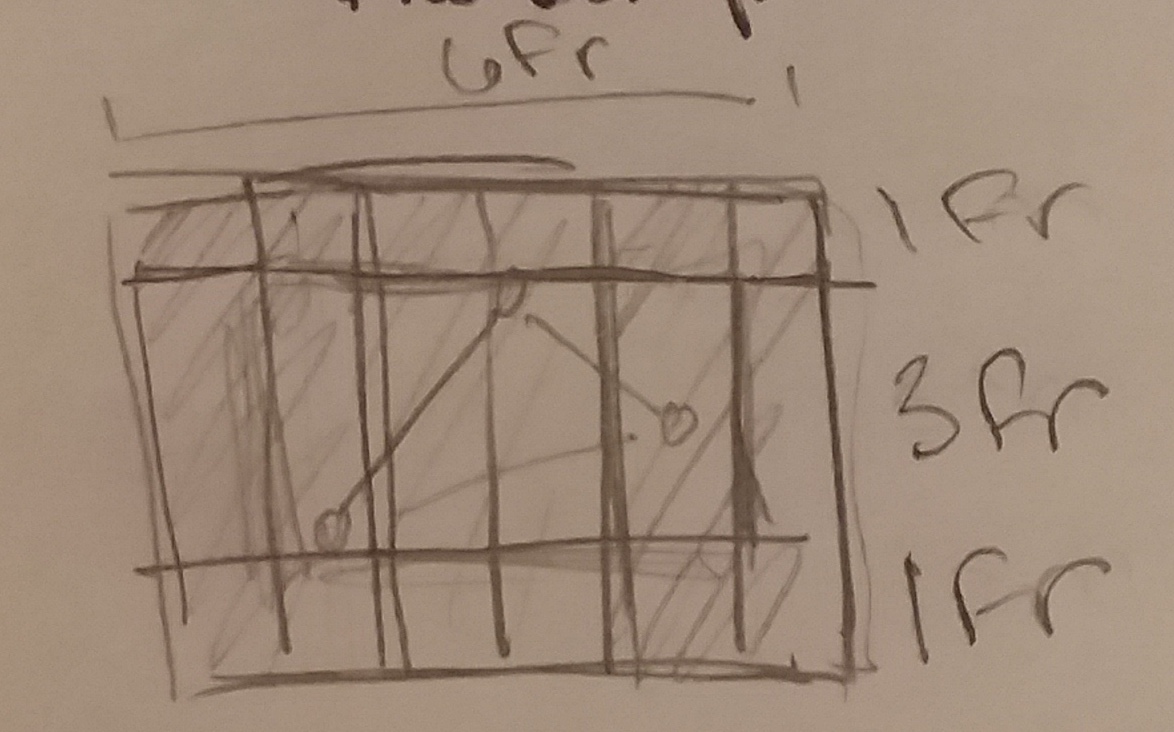 6Fr
1Fr
3Fr
1Fr